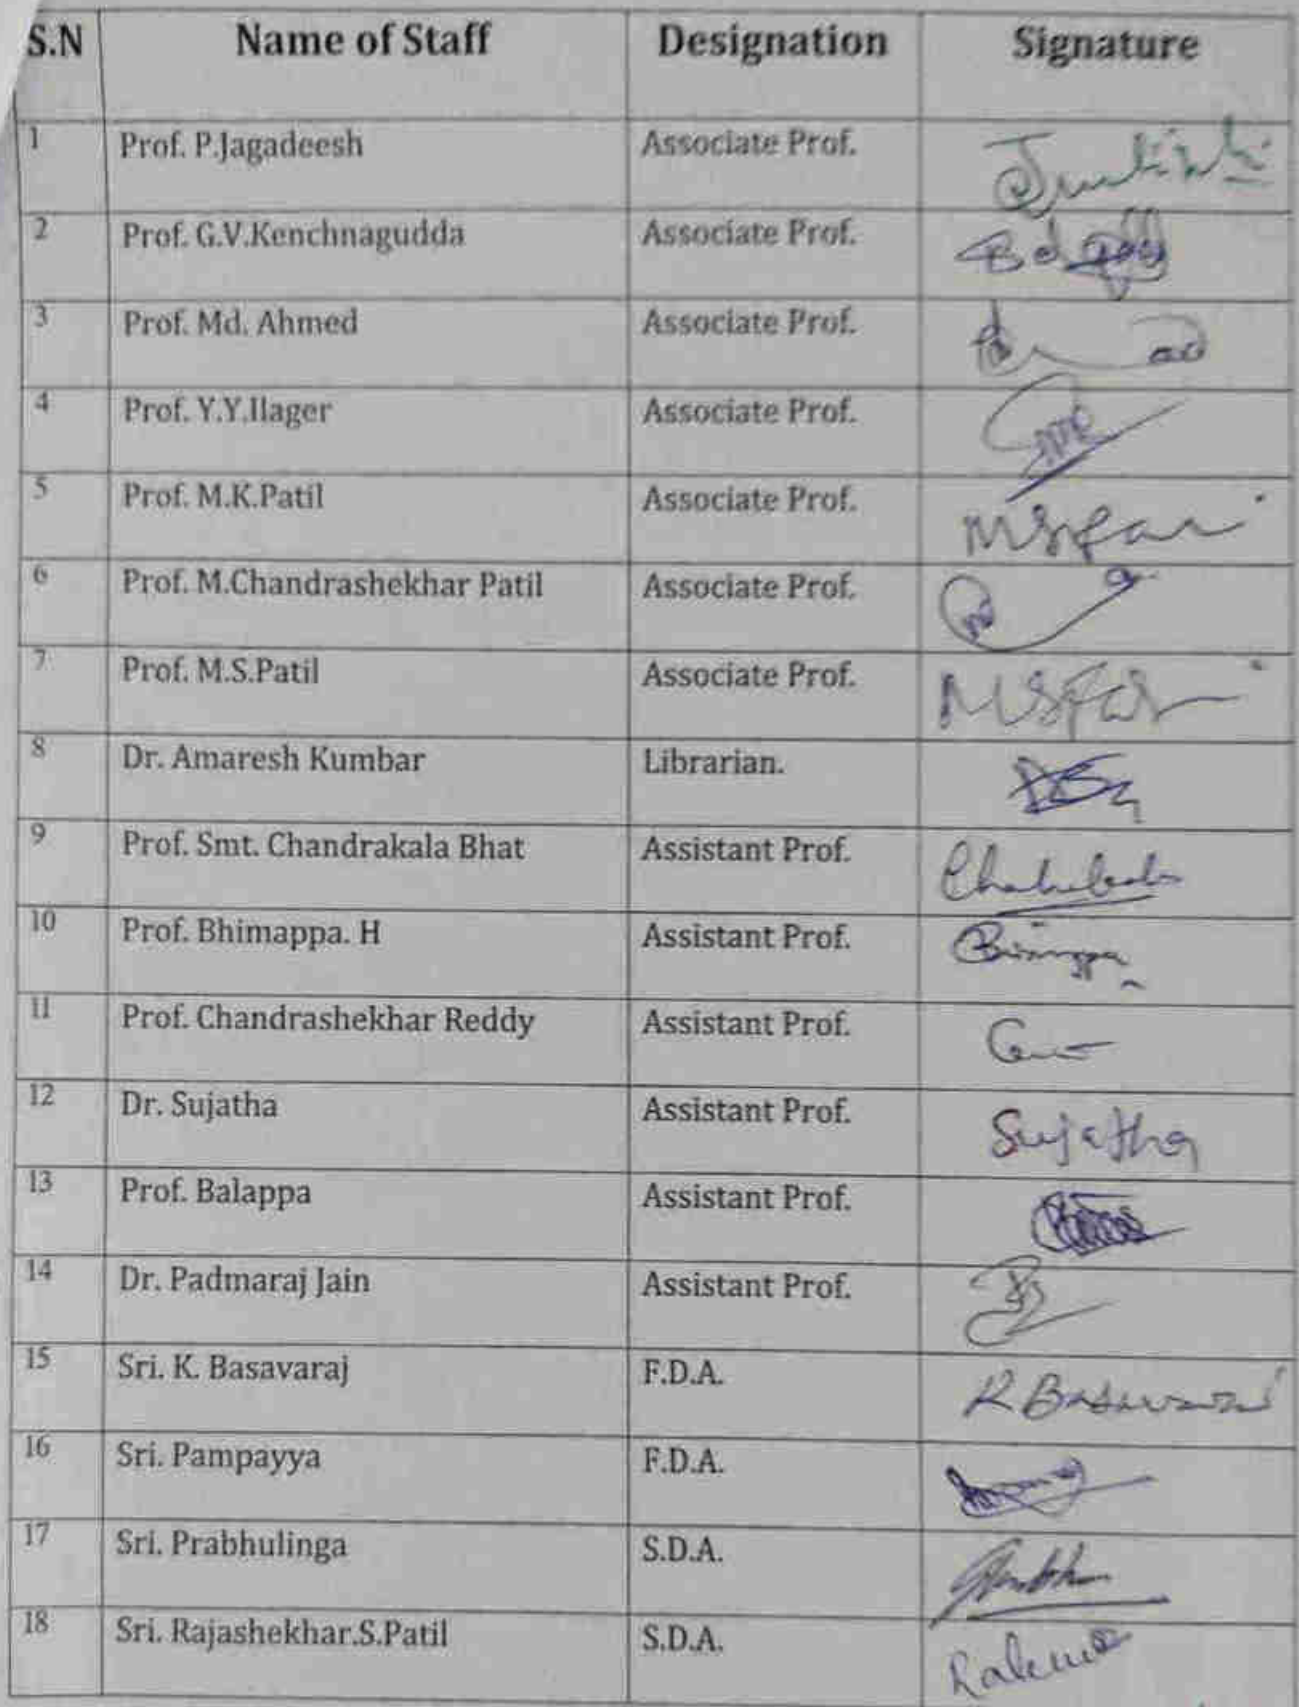 S.N Name of Staff Designation Signature
1 Prof. P.Jagadeesh Associate Prof.
2 Prof. G.V.Kenchnagudda Associate Prof.
3 Prof. Md. Ahmed Associate Prof.
4 Prof. Y.Y.Ilager Associate Prof.
5 Prof. M.K.Patil Associate Prof.
6 Prof. M.Chandrashekhar Patil Associate Prof.
7 Prof. M.S.Patil Associate Prof.
8 Dr. Amaresh Kumbar Librarian.
9 Prof. Smt. Chandrakala Bhat Assistant Prof.
10 Prof. Bhimappa. H Assistant Prof.
11 Prof. Chandrashekhar Reddy Assistant Prof.
12 Dr. Sujatha Assistant Prof. Sujatha
13 Prof. Balappa Assistant Prof.
14 Dr. Padmaraj Jain Assistant Prof.
15 Sri. K. Basavaraj F.D.A.
16 Sri. Pampayya F.D.A.
17 Sri. Prabhulinga S.D.A.
18 Sri. Rajashekhar.S.Patil S.D.A.